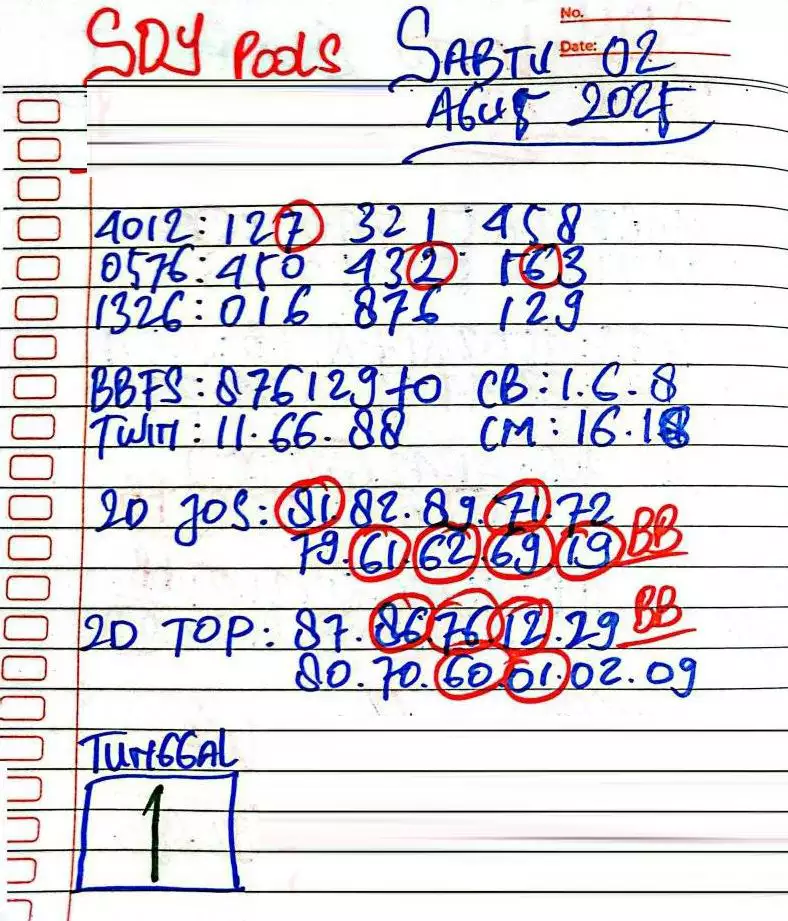 No.
SDY POOLS SABTU Date: 02
AGUS 2025
4012: 127 321 458
0576: 450 432 563
1326: 016 876 129
BBFS: 876129+0 CB: 1.6.8
TWIN: 11.66.88 CM: 16.18
2D JOS: 81.82.89.71.72
79.61.62.69.19 BB
2D TOP: 87.86.76.12.29 BB
80.70.60.01.02.09
TUNGGAL
1